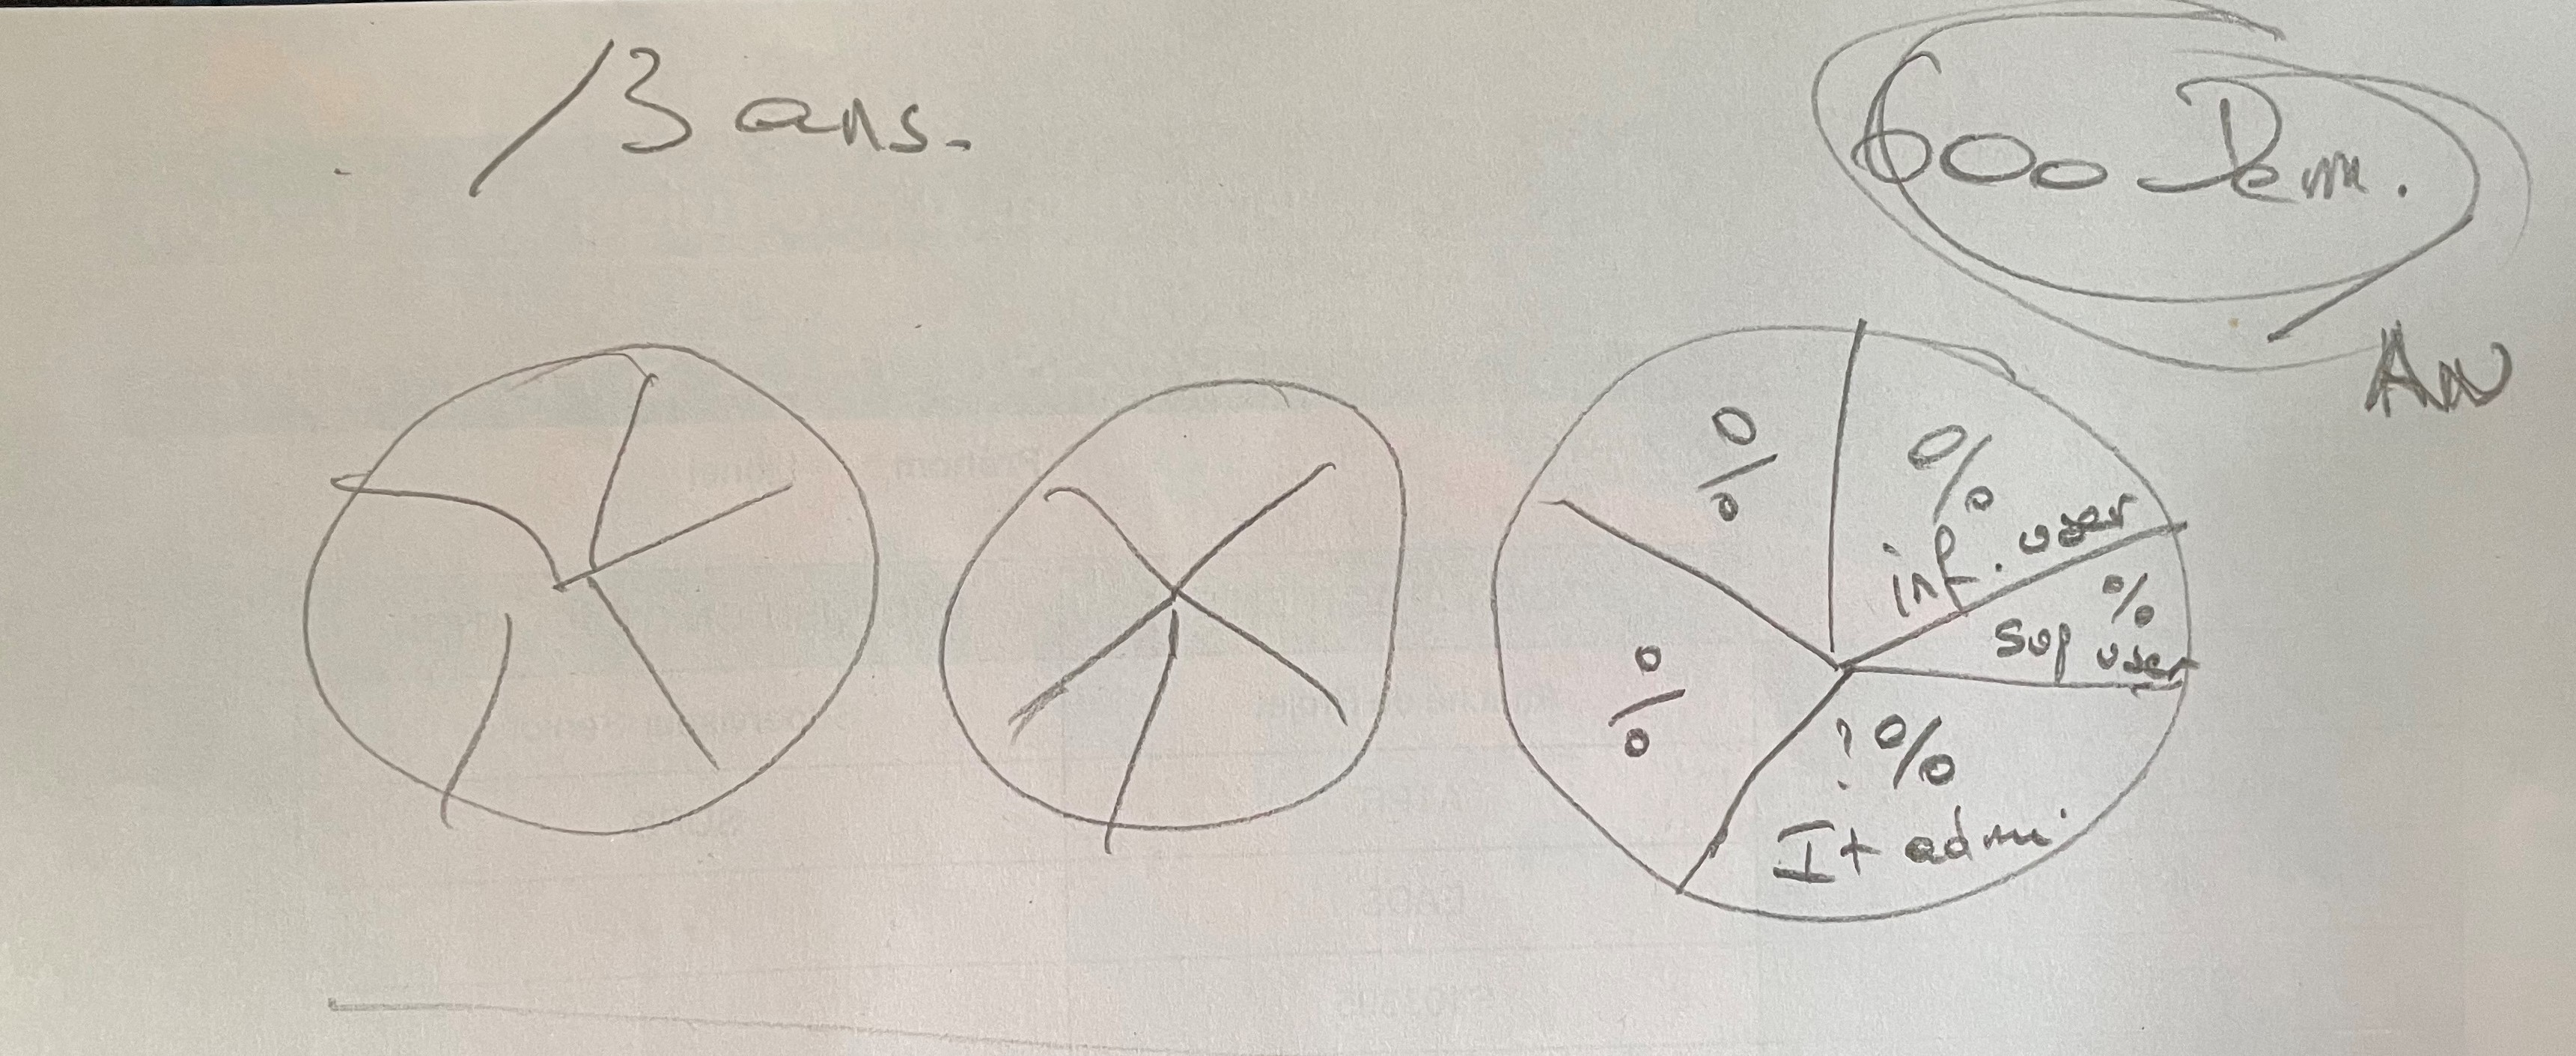 /3 ans.
600 Dem.
AN
%
%
inf. user
%
sup user
%
? %
It admi